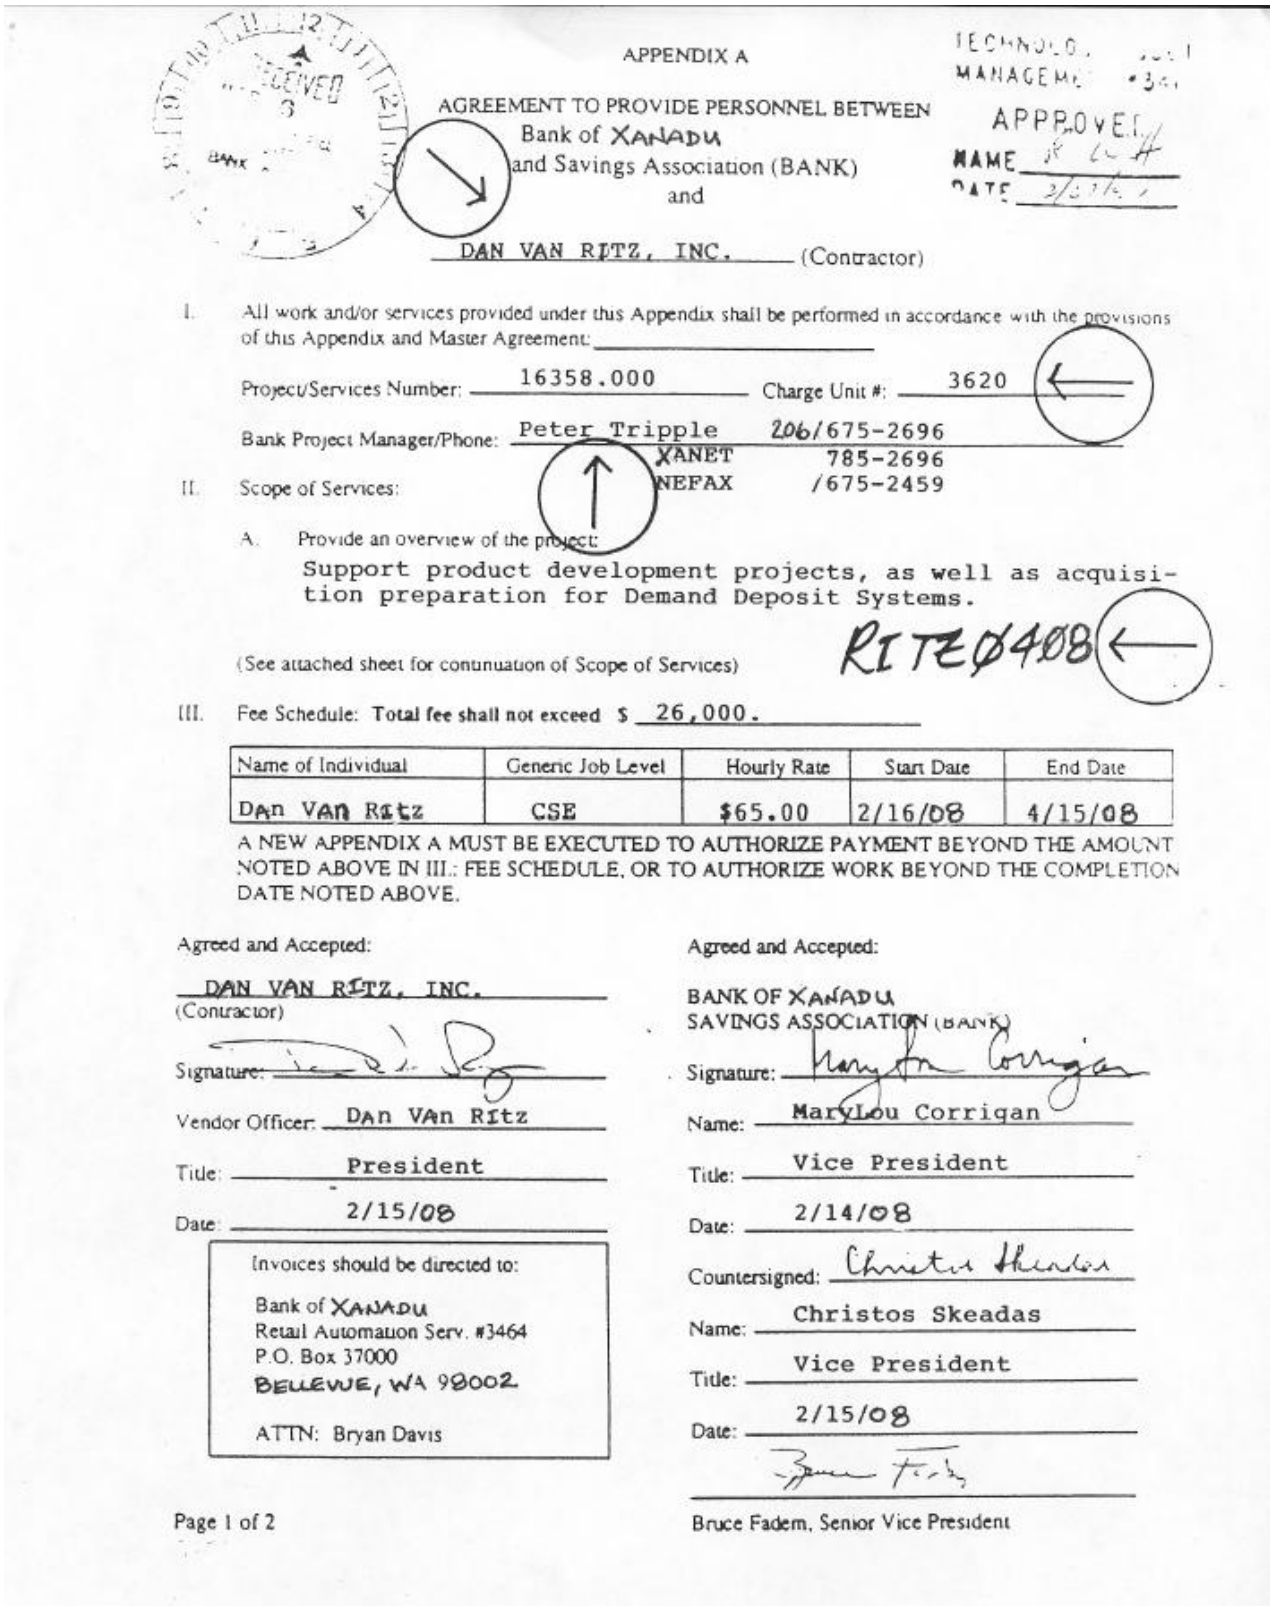 11 12 1
RECEIVED
BANK
TECHNOLO
MANAGEME
APPROVED
NAME
DATE
APPENDIX A
AGREEMENT TO PROVIDE PERSONNEL BETWEEN
Bank of XANADU
and Savings Association (BANK)
and
DAN VAN RITZ, INC. (Contractor)
I. All work and/or services provided under this Appendix shall be performed in accordance with the provisions
of this Appendix and Master Agreement:
Project/Services Number: 16358.000 Charge Unit #: 3620
Bank Project Manager/Phone: Peter Tripple 206/675-2696
XANET 785-2696
NEFAX /675-2459
II. Scope of Services:
A. Provide an overview of the project:
Support product development projects, as well as acquisi-
tion preparation for Demand Deposit Systems.
RITZ0408
(See attached sheet for continuation of Scope of Services)
III. Fee Schedule: Total fee shall not exceed $ 26,000.
Name of Individual Generic Job Level Hourly Rate Start Date End Date
DAn VAn RItz CSE $65.00 2/16/08 4/15/08
A NEW APPENDIX A MUST BE EXECUTED TO AUTHORIZE PAYMENT BEYOND THE AMOUNT
NOTED ABOVE IN III.: FEE SCHEDULE, OR TO AUTHORIZE WORK BEYOND THE COMPLETION
DATE NOTED ABOVE.
Agreed and Accepted:
DAN VAN RITZ, INC.
(Contractor)
Signature:
Vendor Officer: DAn VAn RItz
Title: President
Date: 2/15/08
Invoices should be directed to:
Bank of XANADU
Retail Automation Serv. #3464
P.O. Box 37000
BELLEVUE, WA 98002
ATTN: Bryan Davis
Page 1 of 2
Agreed and Accepted:
BANK OF XANADU
SAVINGS ASSOCIATION (BANK)
Signature: Mary Lou Corrigan
Name: MaryLou Corrigan
Title: Vice President
Date: 2/14/08
Countersigned: Christos Skeadas
Name: Christos Skeadas
Title: Vice President
Date: 2/15/08
Bruce Fadem, Senior Vice President